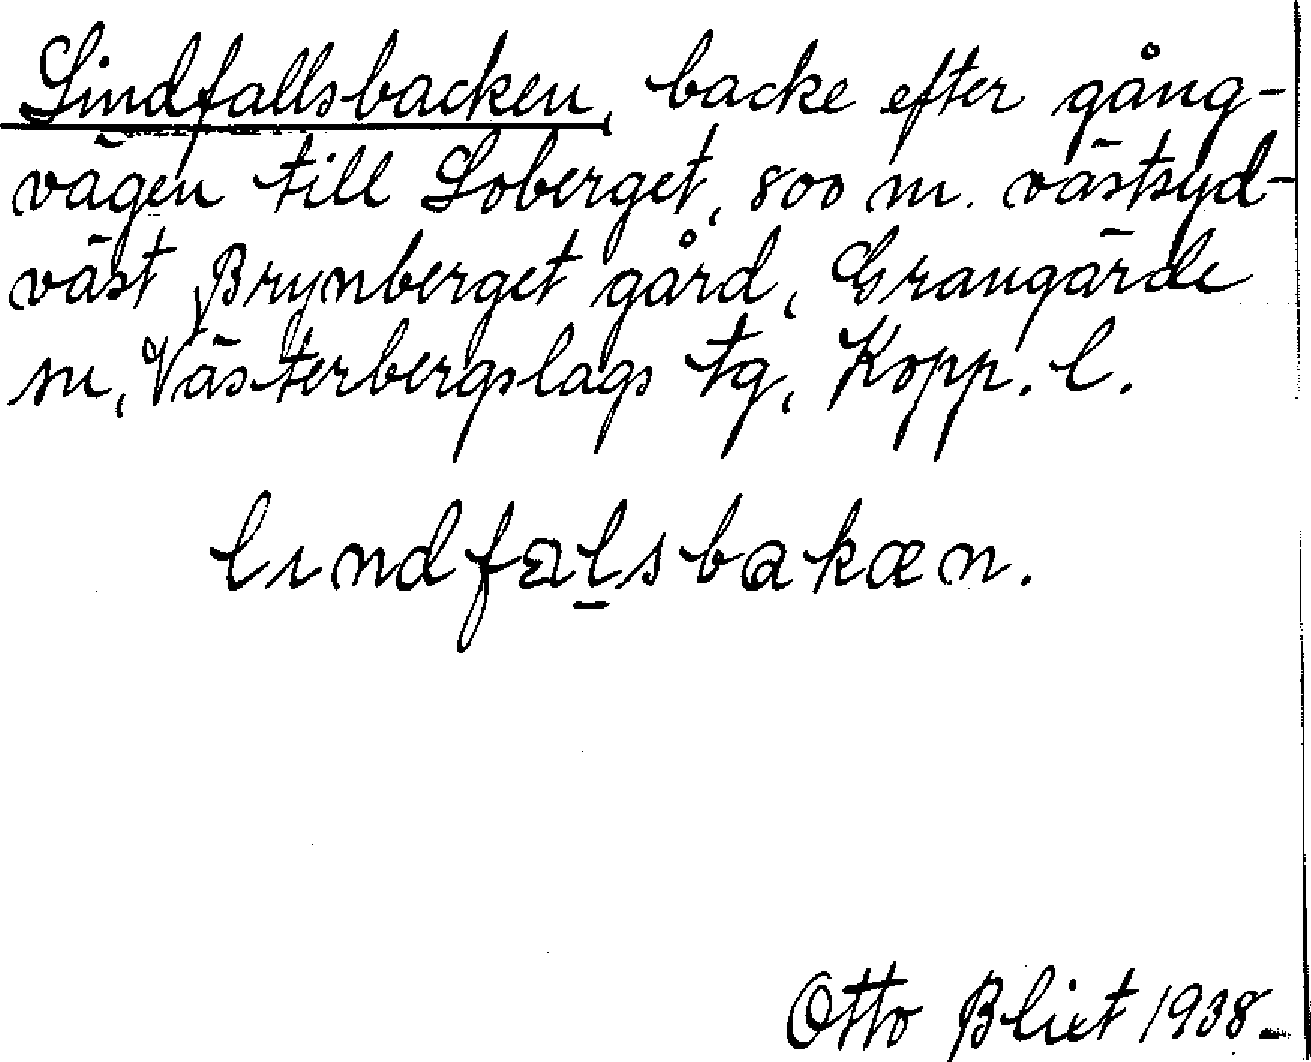 Lindfallsbacken, backe efter gång-
vägen till Loberget, 800 m. västsyd-
väst Brynberget gård, Grangärde
sn, Västerbergslags tg, Kopp. l.
lındfalsbakæn.
Otto Blixt 1938